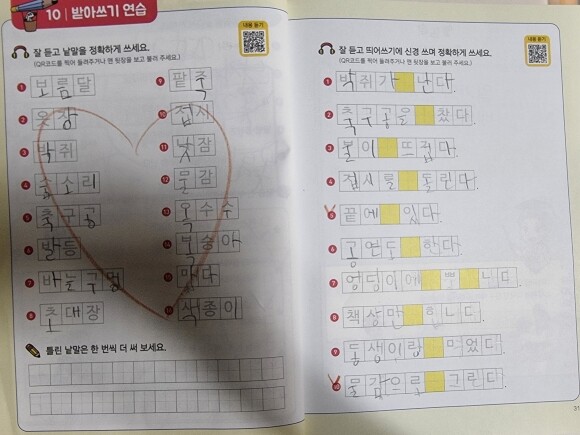 10 | 받아쓰기 연습
내용 듣기
잘 듣고 낱말을 정확하게 쓰세요.
(QR코드를 찍어 들려주거나 맨 뒷장을 보고 불러 주세요.)
1 보름달
2 옷장
3 박쥐
4 숨소리
5 축구공
6 발등
7 바늘구멍
8 초대장
9 팥죽
10 접시
11 낮잠
12 물감
13 옥수수
14 복숭아
15 맏다
16 색종이
틀린 낱말은 한 번씩 더 써 보세요.
내용 듣기
잘 듣고 띄어쓰기에 신경 쓰며 정확하게 쓰세요.
(QR코드를 찍어 들려주거나 맨 뒷장을 보고 불러 주세요.)
1 박쥐가 난다.
2 축구공을 찼다.
3 볼이 뜨겁다.
4 접시를 돌린다.
5 끝에 있다.
6 공연도 한다.
7 엉덩이에 뿔 난다
8 책상만
9 동생이랑 먹었다.
10 물감으로 그린다.
31